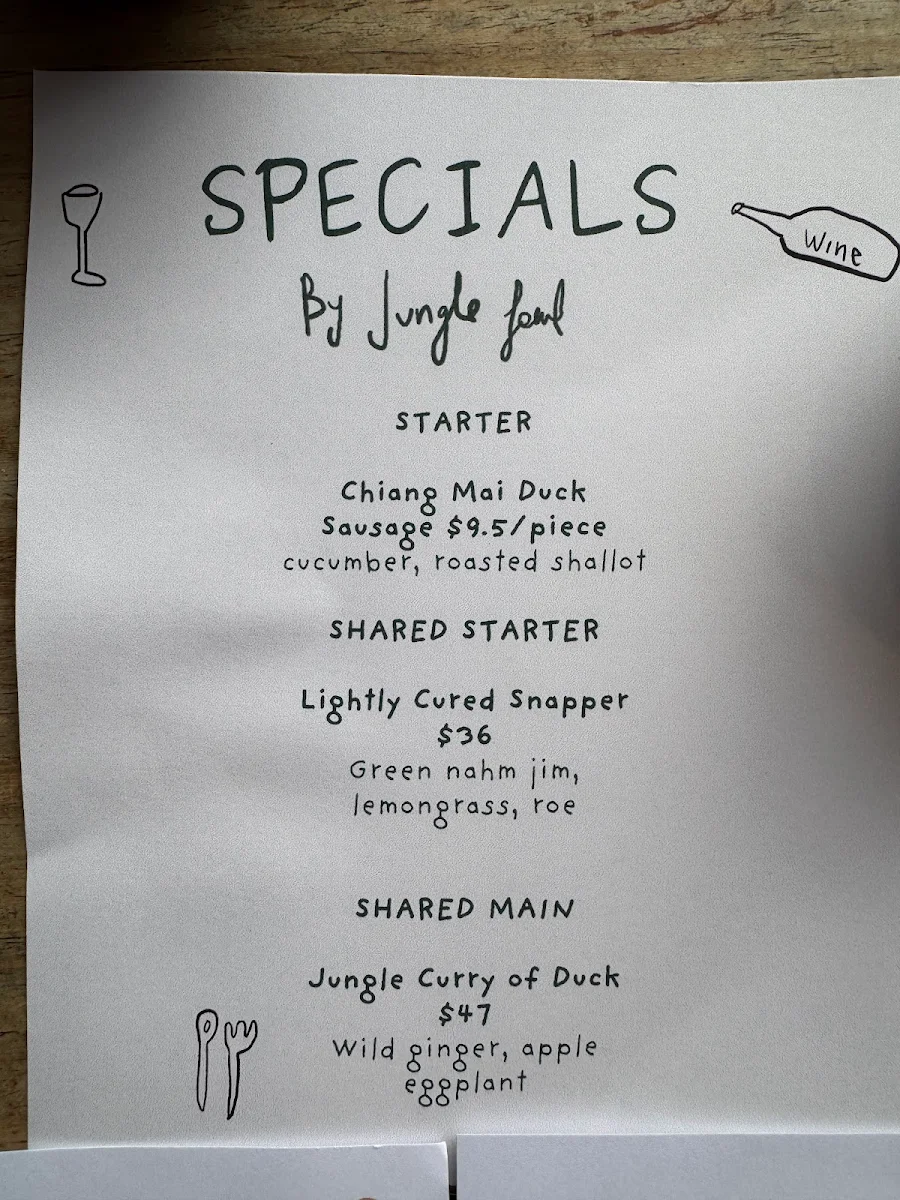 SPECIALS
Wine
By Jungle fowl
STARTER
Chiang Mai Duck
Sausage $9.5/piece
cucumber, roasted shallot
SHARED STARTER
Lightly Cured Snapper
$36
Green nahm jim,
lemongrass, roe
SHARED MAIN
Jungle Curry of Duck
$47
Wild ginger, apple
eggplant